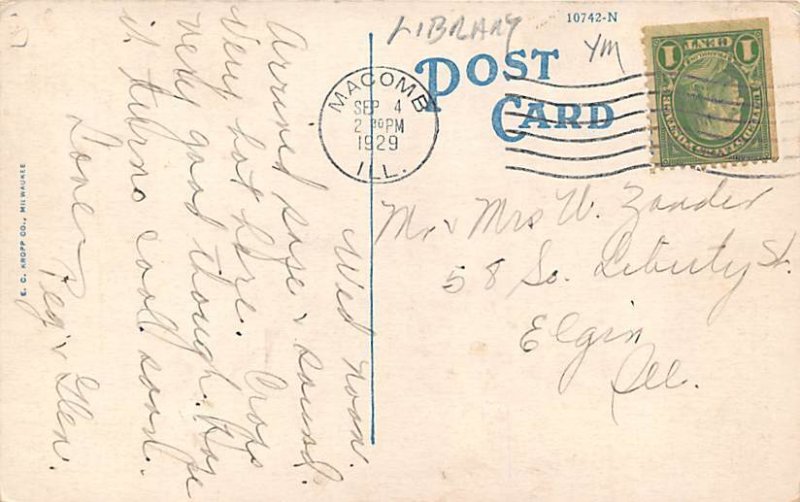 LIBRARY
10742-N
YM
POST
CARD
MACOMB
SEP 4
2 30 PM
1929
ILL.
1 CENT 1
Mr & Mrs W. Zander
58 So. Liberty St.
Elgin
Ill.
Wed noon.
Arrived safe & sound.
Very hot here. Crops
very good though. Hope
it turns cool soon.
Love
Peg & Glen.
E. C. KROPP CO., MILWAUKEE